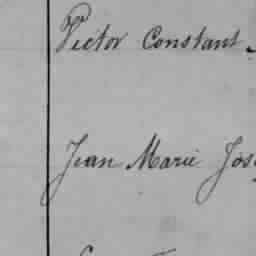 Victor Constant
Jean Marie Jos